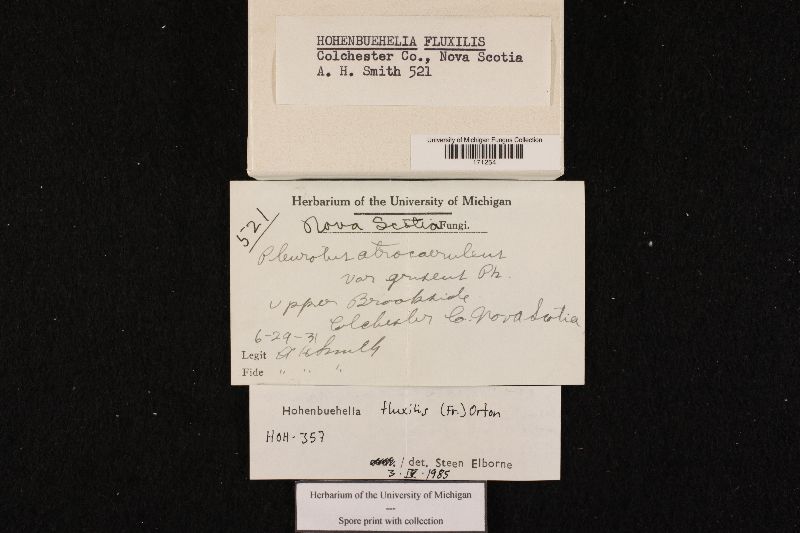 HOHENBUEHELIA FLUXILIS
Colchester Co., Nova Scotia
A. H. Smith 521
University of Michigan Fungus Collection
171254
Herbarium of the University of Michigan
521
Nova Scotia Fungi.
Pleurotus atrocaeruleus
var griseus Pk.
Upper Brookside
Colchester Co. Nova Scotia
6-29-31
Legit A H Smith
Fide " " "
Hohenbuehelia fluxilis (Fr.) Orton
HOH-357
/ det. Steen Elborne
3·IV·1985
Herbarium of the University of Michigan
---
Spore print with collection